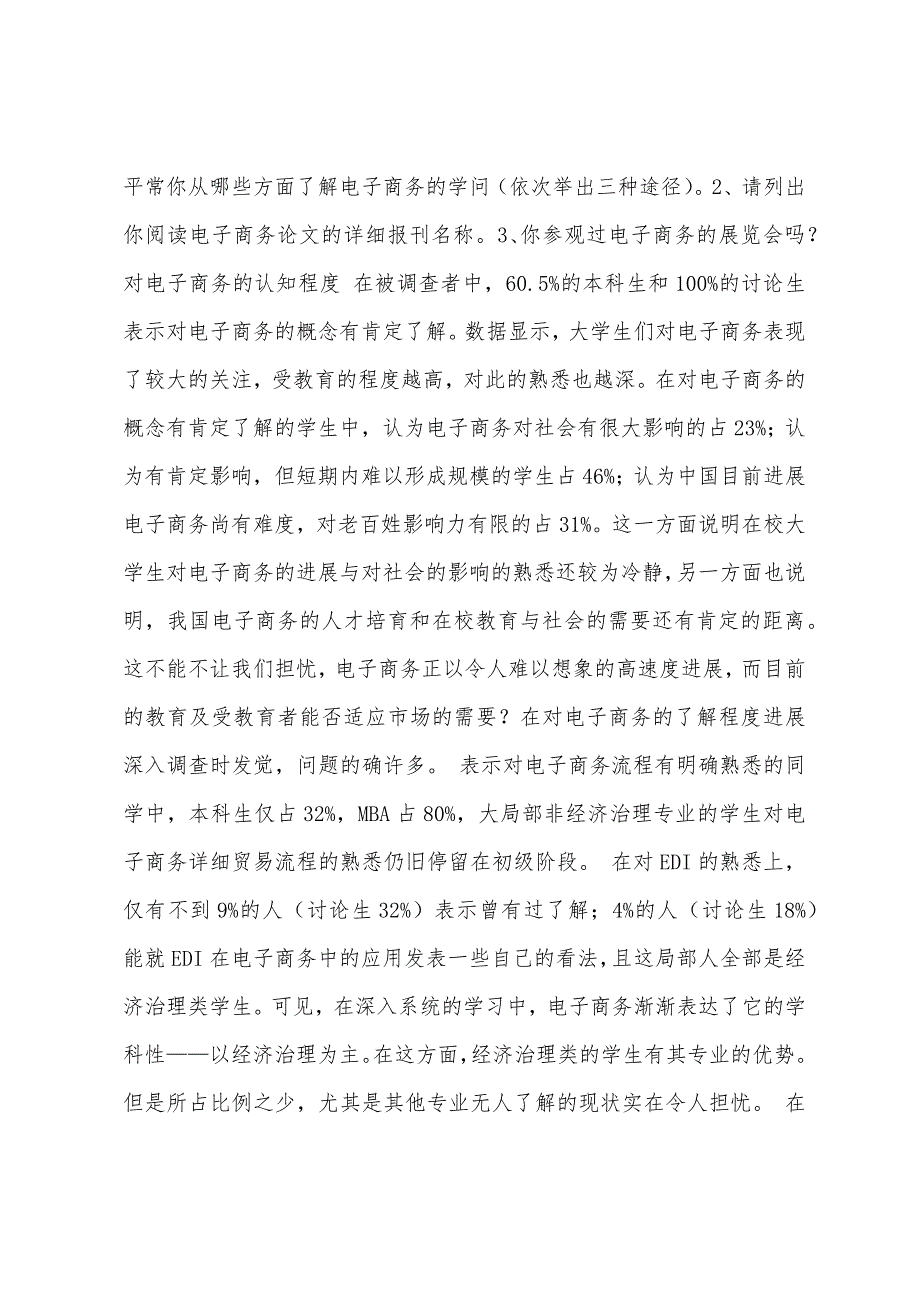 平常你从哪些方面了解电子商务的学问（依次举出三种途径）。2、请列出
你阅读电子商务论文的详细报刊名称。3、你参观过电子商务的展览会吗？
对电子商务的认知程度 在被调查者中，60.5%的本科生和100%的讨论生
表示对电子商务的概念有肯定了解。数据显示，大学生们对电子商务表现
了较大的关注，受教育的程度越高，对此的熟悉也越深。在对电子商务的
概念有肯定了解的学生中，认为电子商务对社会有很大影响的占23%；认
为有肯定影响，但短期内难以形成规模的学生占46%；认为中国目前进展
电子商务尚有难度，对老百姓影响力有限的占31%。这一方面说明在校大
学生对电子商务的进展与对社会的影响的熟悉还较为冷静，另一方面也说
明，我国电子商务的人才培育和在校教育与社会的需要还有肯定的距离。
这不能不让我们担忧，电子商务正以令人难以想象的高速度进展，而目前
的教育及受教育者能否适应市场的需要？在对电子商务的了解程度进展
深入调查时发觉，问题的确许多。 表示对电子商务流程有明确熟悉的同
学中，本科生仅占32%，MBA占80%，大局部非经济治理专业的学生对电
子商务详细贸易流程的熟悉仍旧停留在初级阶段。 在对EDI的熟悉上，
仅有不到9%的人（讨论生32%）表示曾有过了解；4%的人（讨论生18%）
能就EDI在电子商务中的应用发表一些自己的看法，且这局部人全部是经
济治理类学生。可见，在深入系统的学习中，电子商务渐渐表达了它的学
科性——以经济治理为主。在这方面，经济治理类的学生有其专业的优势。
但是所占比例之少，尤其是其他专业无人了解的现状实在令人担忧。 在